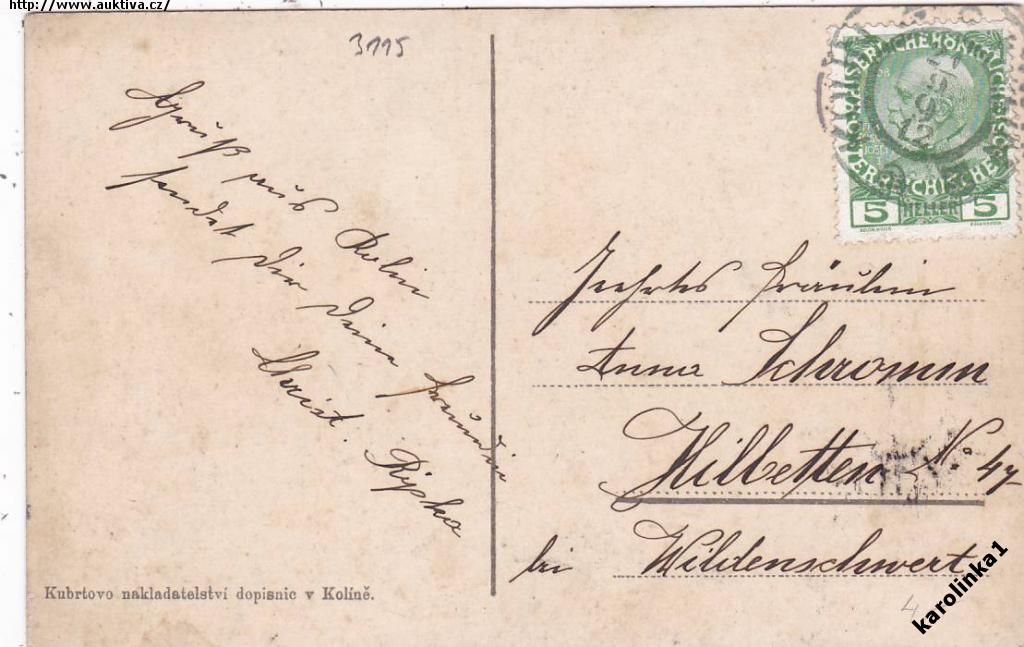 http://www.auktiva.cz/
3115
Gruß aus Kolin
sendet Dir Deine Freundin
Christ. Ripka
KAISERLICHE KÖNIGLICHE
ÖSTERREICHISCHE
5 HELLER 5
Geehrtes Fräulein
Anna Schromm
Hilbetten No. 47
bei Wildenschwert
Kubrtovo nakladatelství dopisnic v Kolíně.
4
karolinka1